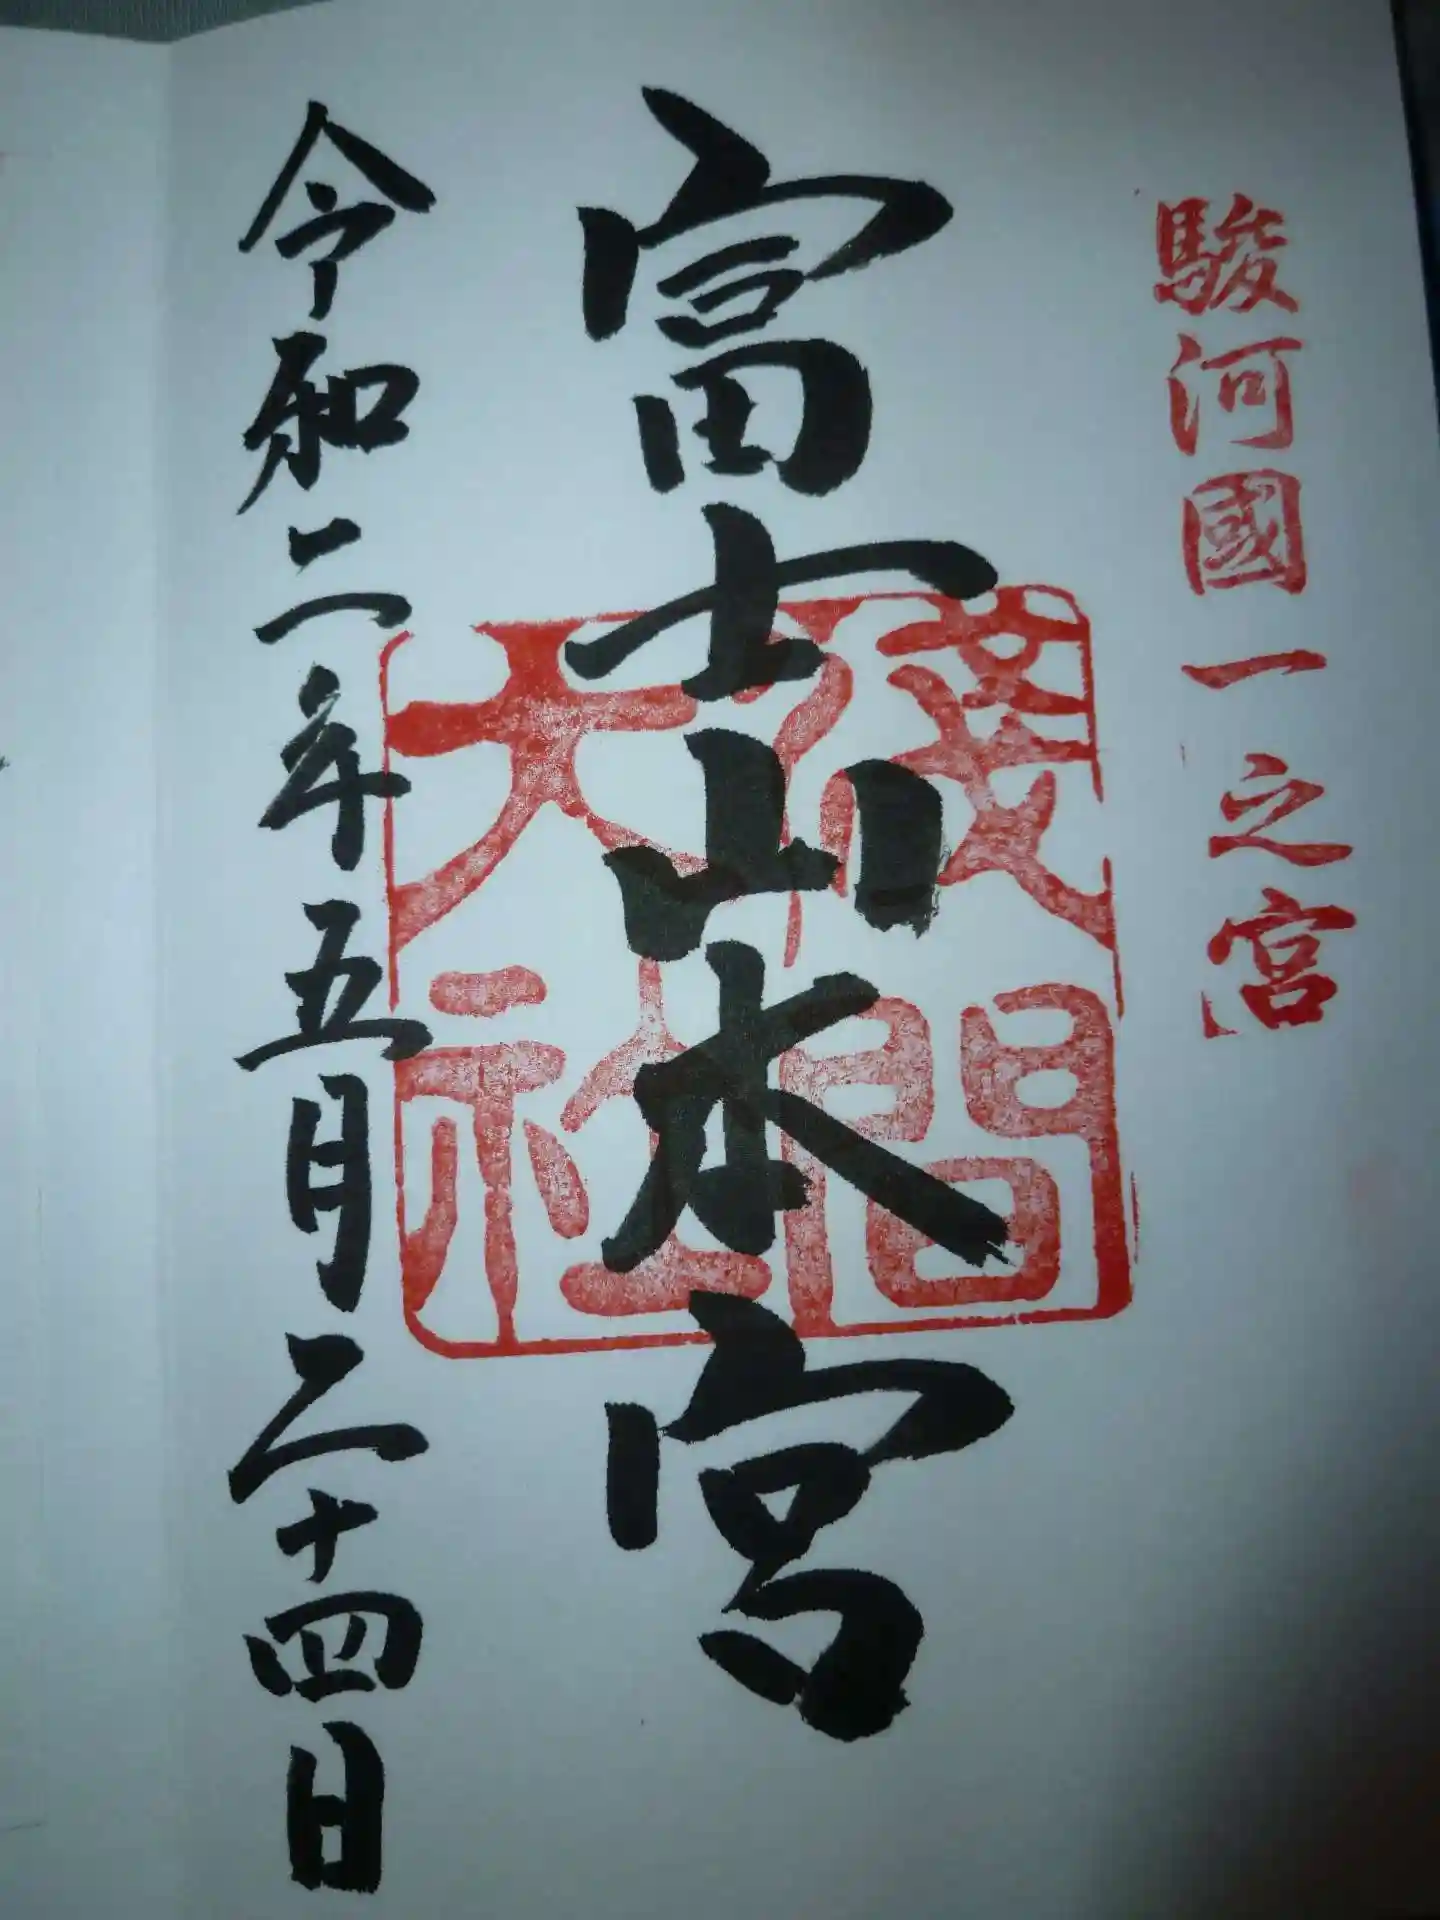 駿河國一之宮
富士山本宮
淺間大社
令和二年五月二十四日